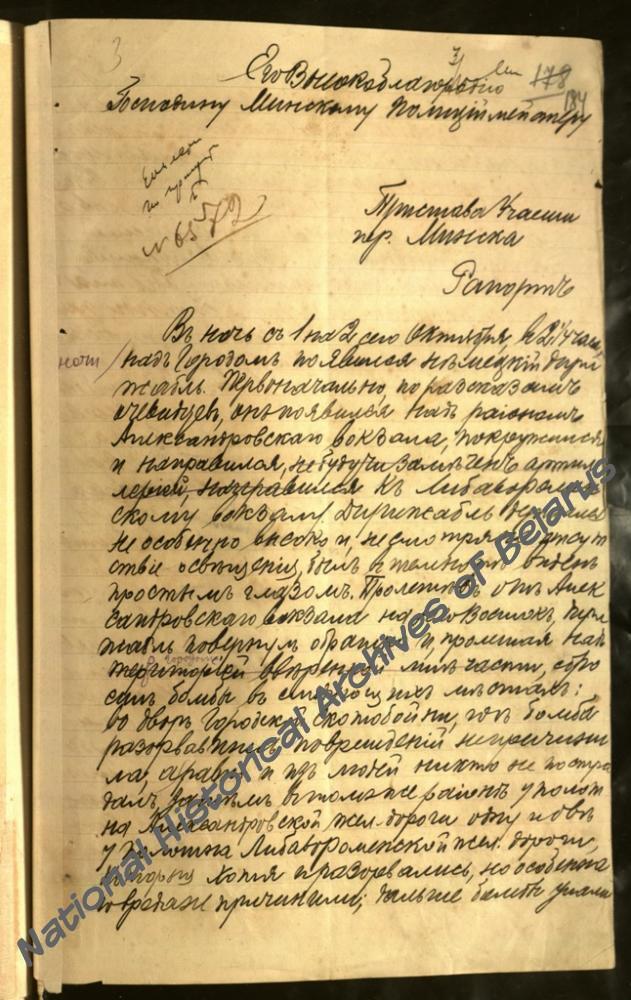 3
178
184
Его Высокоблагородію
Господину Минскому Полиціймейстеру
№ 6572
Пристава 4 части
гор. Минска
Рапортъ
Въ ночь съ 1 на 2 сего Октября, в 2 1/4 часа
ночи надъ Городомъ появился немецкій дири
жабль. Первоначально, по разсказамъ
очевидцев, онъ появился надъ раіономъ
Александровскаго вокзала, покружился
и направился, не будучи замѣченъ артил
леріей, направился къ Либаворомен
скому вокзалу. Дирижабль держался
не особенно высоко и, несмотря на отсут
ствіе освѣщенія, былъ в темнотѣ виденъ
простымъ глазомъ. Пролетѣвъ отъ Алек
сандровскаго вокзала на Востокъ, дири
жабль повернулъ обратно и, пролетая надъ
территоріей ввѣренной мнѣ части, сбро
силъ бомбы въ слѣдующихъ мѣстахъ:
во дворѣ Городской скотобойни, гдѣ бомба
разорвавшись поврежденій не причини
ла, а равно и изъ людей никто не постра
далъ, затѣмъ в томъ же раіонѣ у полот
на Александровской жел. дороги одну и двѣ
у полотна Либавороменской жел. дороги,
которыя хотя и разорвались, но особенна
го вреда не причинили; дальше бомбы упали
National Historical Archives of Belarus